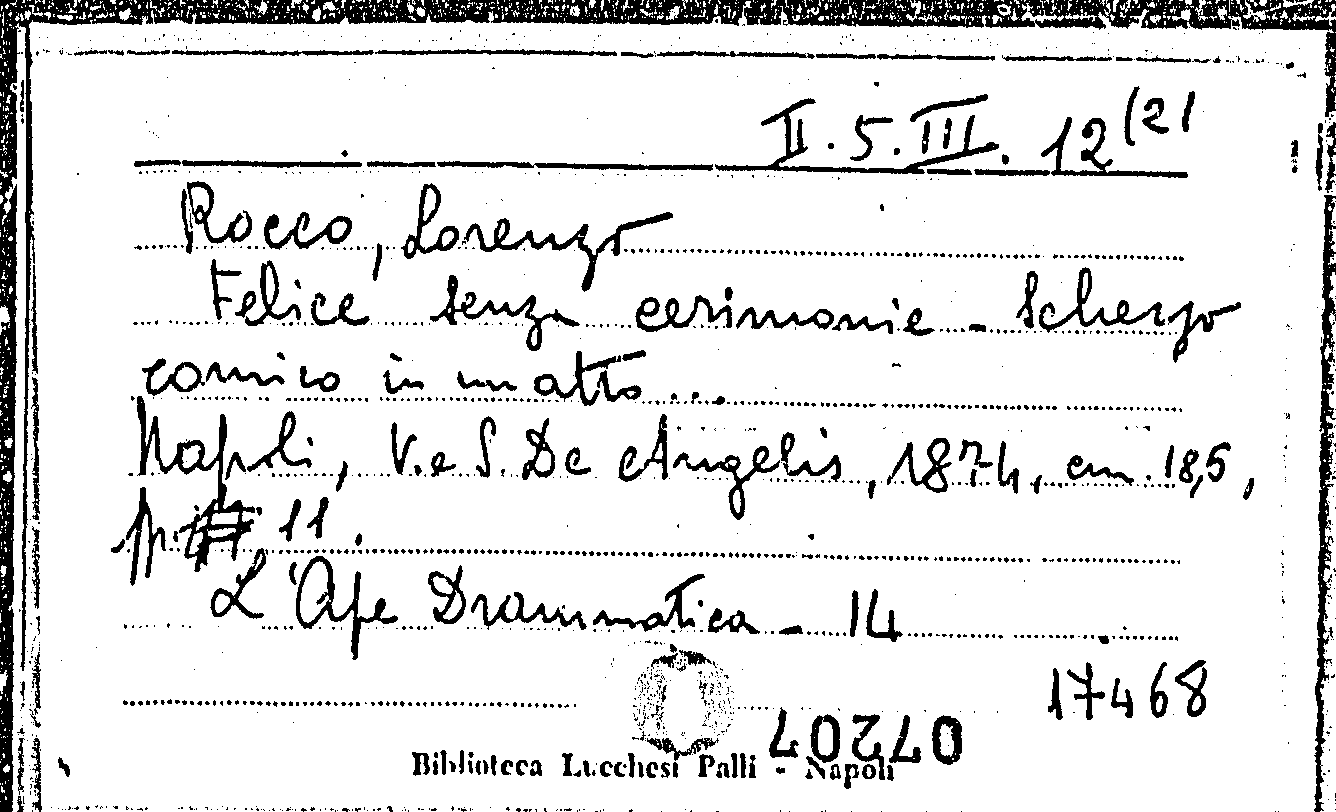 II.5.III.12(21
Rocco, Lorenzo
Felice senza cerimonie - Scherzo
comico in un atto...
Napoli, V. e S. De Angelis, 1874, cm. 18,5,
p. 11.
L'Ape Drammatica - 14
17468
07207
Biblioteca Lucchesi Palli - Napoli